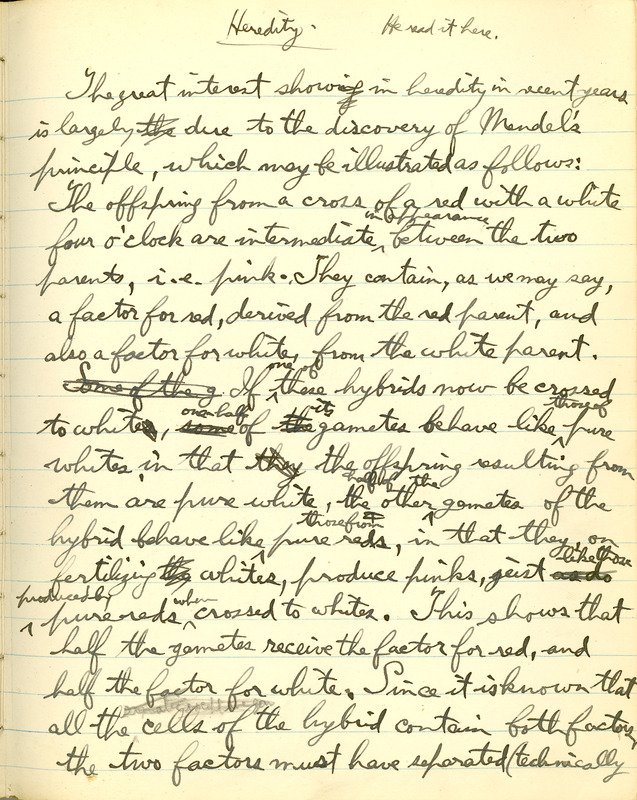 Heredity. He read it here.
The great interest showing in heredity in recent years
is largely the due to the discovery of Mendel's
principle, which may be illustrated as follows:
The offspring from a cross of a red with a white
in appearance
four o'clock are intermediate, between the two
parents, i.e. pink. They contain, as we may say,
a factor for red, derived from the red parent, and
also a factor for white, from the white parent.
one of
Some of the g If these hybrids now be crossed
one half its those of
to whites, some of the gametes behave like pure
whites in that they the offspring resulting from
half of the
them are pure white, the other gametes of the
those from
hybrid behave like pure reds, in that they, on
like those
fertilizing the whites, produce pinks, just as do
produced by when
pure reds crossed to whites. This shows that
half the gametes receive the factor for red, and
half the factor for white. Since it is known that
all the cells of the hybrid contain both factors,
the two factors must have separated (technically